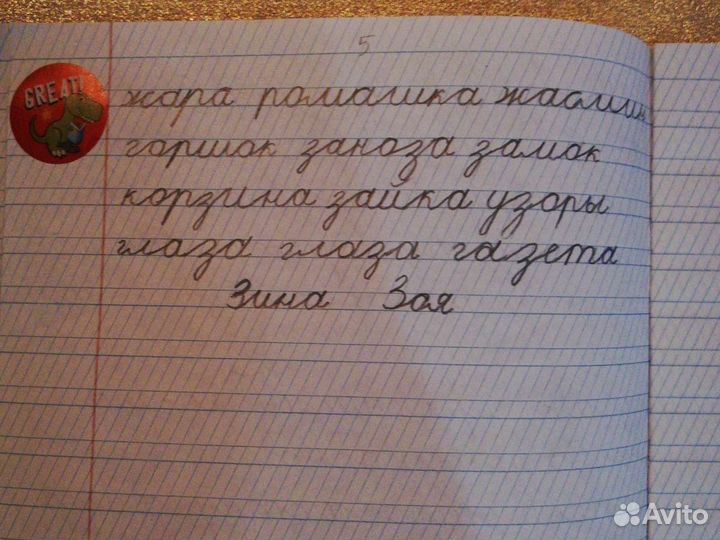 5
GREAT!
жара ромашка жасмин
горшок заноза замок
корзина зайка узоры
глаза глаза газета
Зина Зоя
Avito